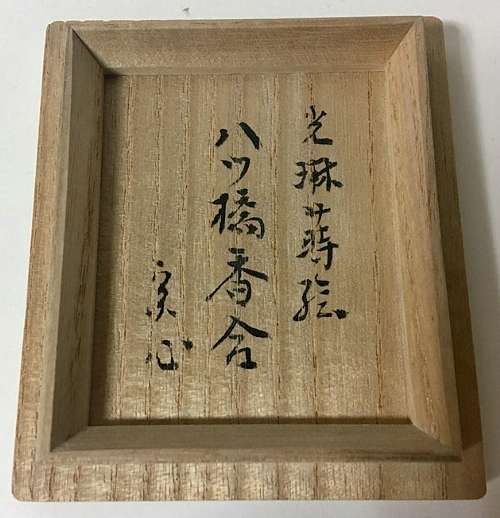 光琳蒔絵
八ツ橋香合